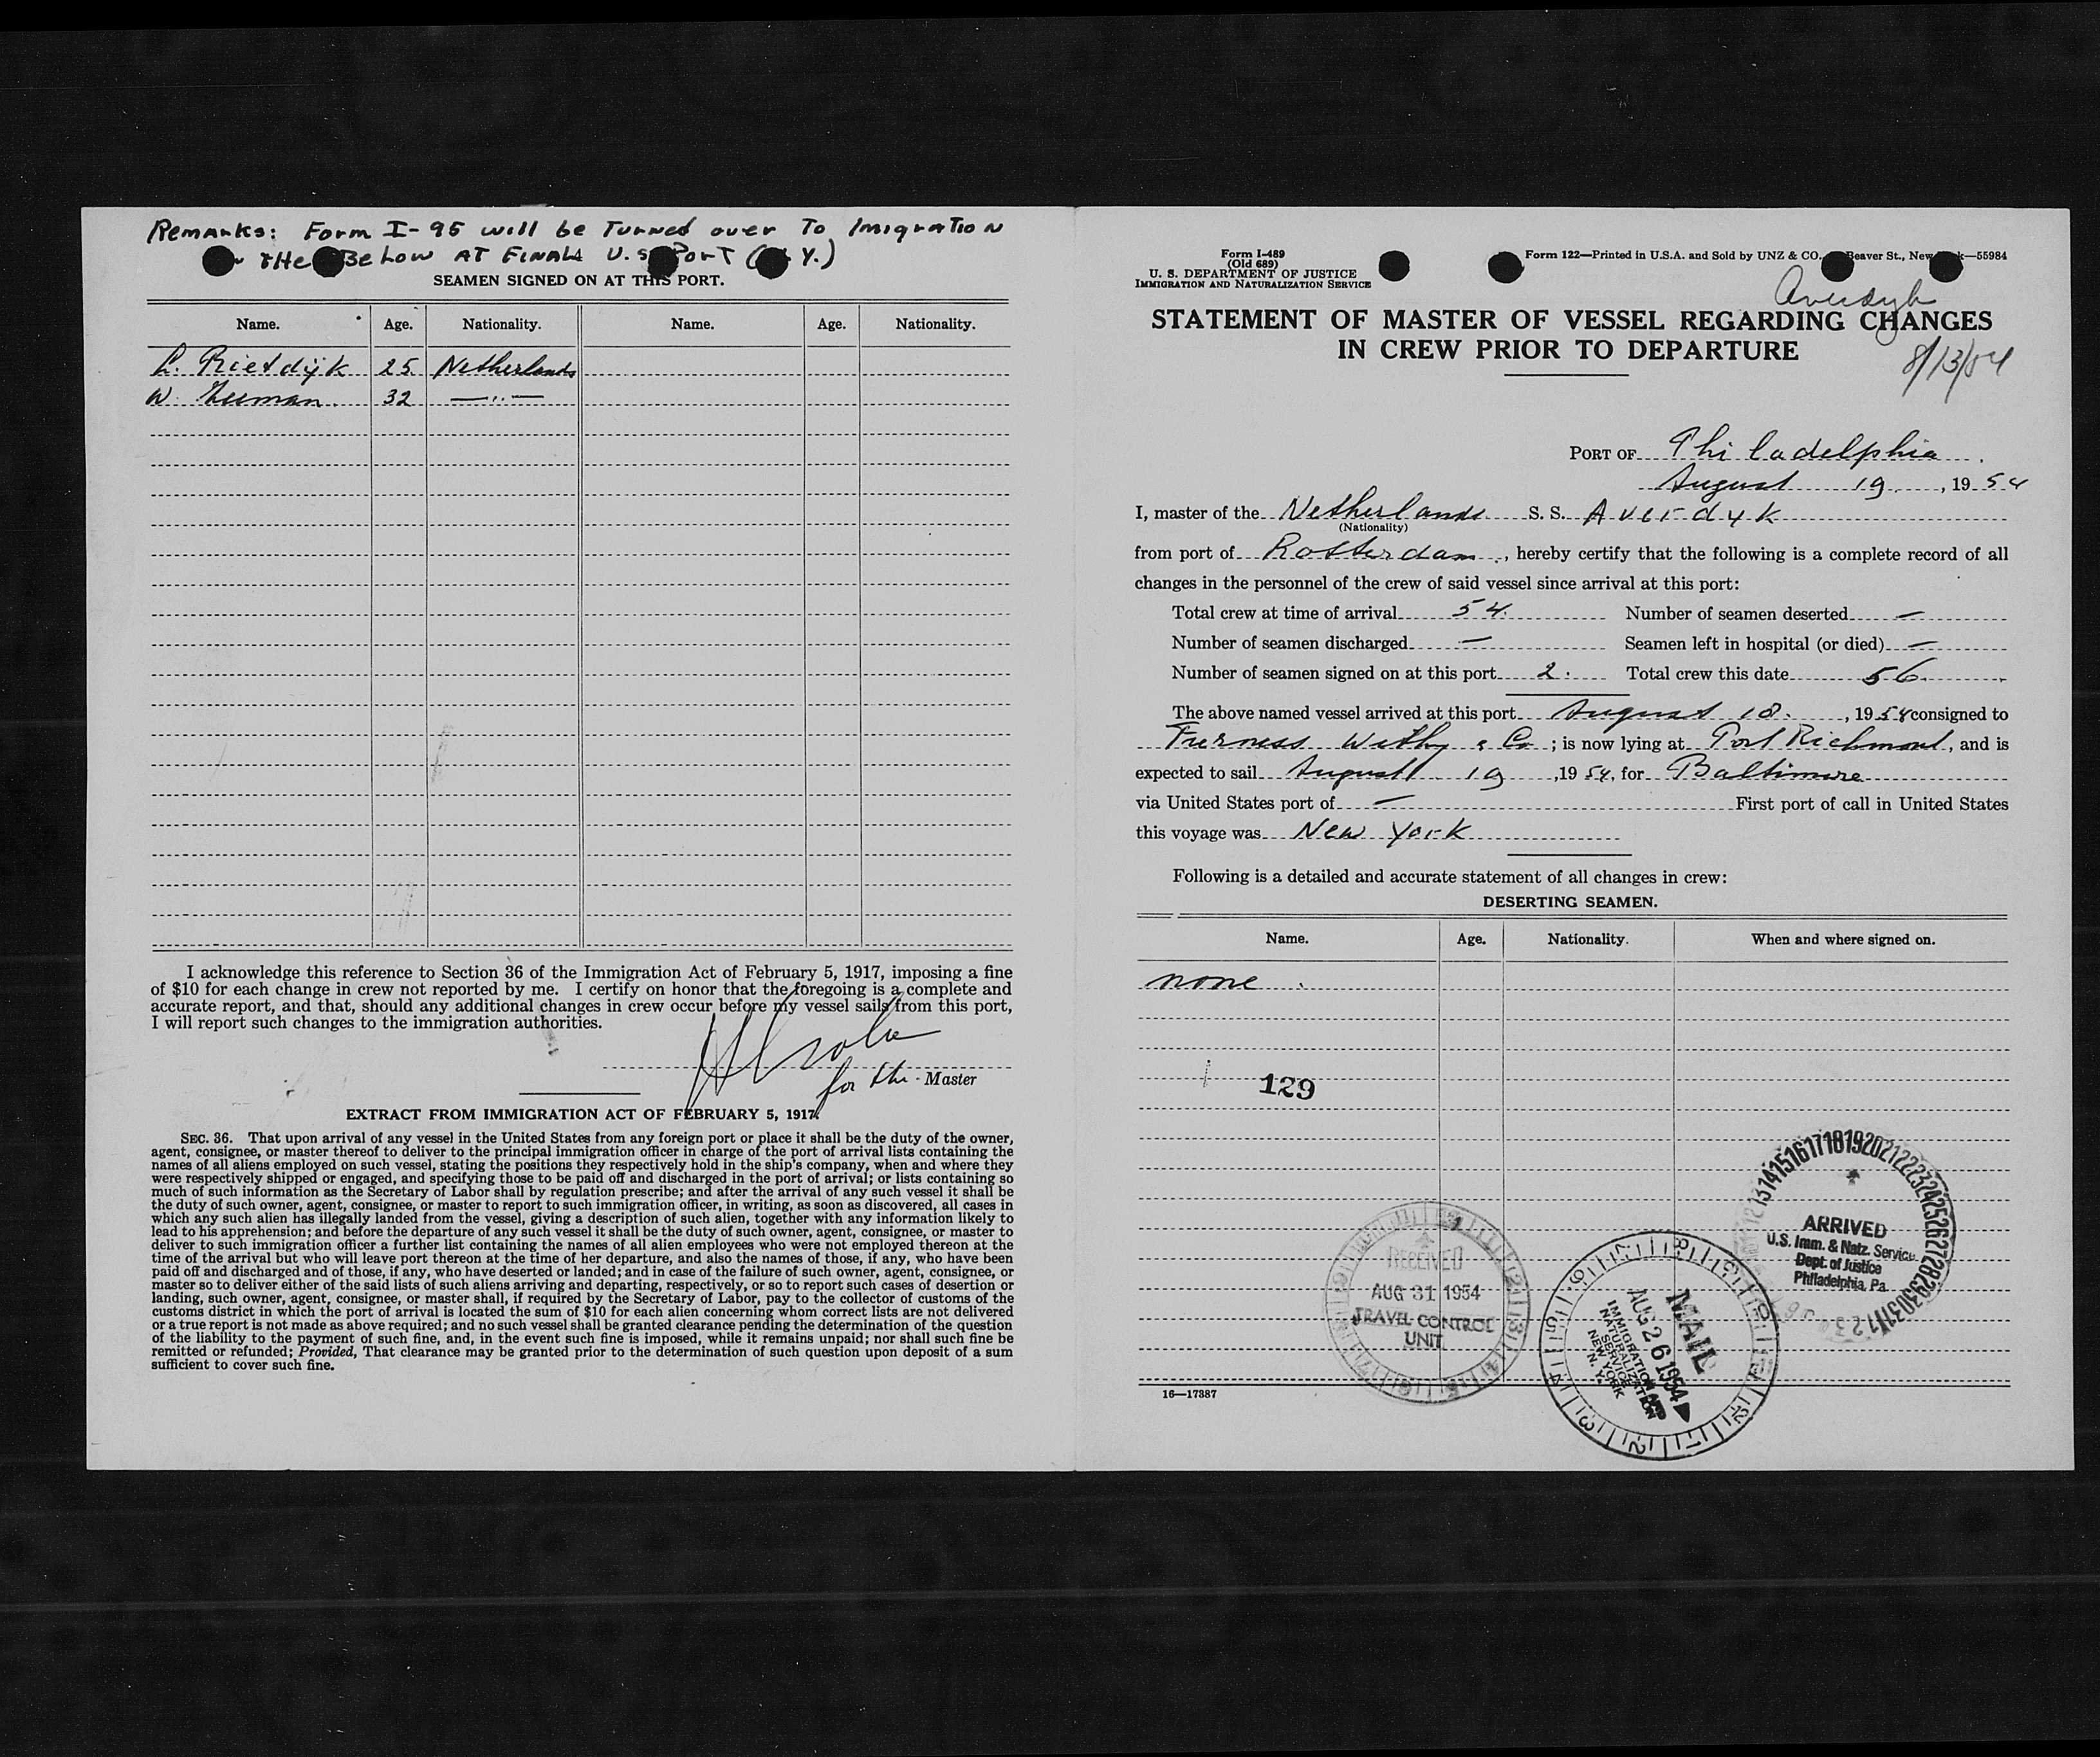 Remarks: Form I-95 will be Turned over To Imigration
THE Below AT FINAL U.S. PORT ( Y.)
SEAMEN SIGNED ON AT THIS PORT.
Name. Age. Nationality. Name. Age. Nationality.
L. Rietdijk 25 Netherlands
W. 32 — " —
I acknowledge this reference to Section 36 of the Immigration Act of February 5, 1917, imposing a fine
of $10 for each change in crew not reported by me. I certify on honor that the foregoing is a complete and
accurate report, and that, should any additional changes in crew occur before my vessel sails from this port,
I will report such changes to the immigration authorities.
for the Master
EXTRACT FROM IMMIGRATION ACT OF FEBRUARY 5, 1917.
SEC. 36. That upon arrival of any vessel in the United States from any foreign port or place it shall be the duty of the owner,
agent, consignee, or master thereof to deliver to the principal immigration officer in charge of the port of arrival lists containing the
names of all aliens employed on such vessel, stating the positions they respectively hold in the ship's company, when and where they
were respectively shipped or engaged, and specifying those to be paid off and discharged in the port of arrival; or lists containing so
much of such information as the Secretary of Labor shall by regulation prescribe; and after the arrival of any such vessel it shall be
the duty of such owner, agent, consignee, or master to report to such immigration officer, in writing, as soon as discovered, all cases in
which any such alien has illegally landed from the vessel, giving a description of such alien, together with any information likely to
lead to his apprehension; and before the departure of any such vessel it shall be the duty of such owner, agent, consignee, or master to
deliver to such immigration officer a further list containing the names of all alien employees who were not employed thereon at the
time of the arrival but who will leave port thereon at the time of her departure, and also the names of those, if any, who have been
paid off and discharged and of those, if any, who have deserted or landed; and in case of the failure of such owner, agent, consignee, or
master so to deliver either of the said lists of such aliens arriving and departing, respectively, or so to report such cases of desertion or
landing, such owner, agent, consignee, or master shall, if required by the Secretary of Labor, pay to the collector of customs of the
customs district in which the port of arrival is located the sum of $10 for each alien concerning whom correct lists are not delivered
or a true report is not made as above required; and no such vessel shall be granted clearance pending the determination of the question
of the liability to the payment of such fine, and, in the event such fine is imposed, while it remains unpaid; nor shall such fine be
remitted or refunded; Provided, That clearance may be granted prior to the determination of such question upon deposit of a sum
sufficient to cover such fine.
Form I-489
(Old 689)
U. S. DEPARTMENT OF JUSTICE
IMMIGRATION AND NATURALIZATION SERVICE
Form 122—Printed in U.S.A. and Sold by UNZ & CO., Beaver St., New k—55984
Averdyk
STATEMENT OF MASTER OF VESSEL REGARDING CHANGES
IN CREW PRIOR TO DEPARTURE
8/13/54
PORT OF Philadelphia
August 19, 1954
I, master of the Netherlands S. S. Averdyk
(Nationality)
from port of Rotterdam, hereby certify that the following is a complete record of all
changes in the personnel of the crew of said vessel since arrival at this port:
Total crew at time of arrival 54. Number of seamen deserted —
Number of seamen discharged — Seamen left in hospital (or died) —
Number of seamen signed on at this port 2. Total crew this date 56.
The above named vessel arrived at this port August 18., 1954 consigned to
Furness Withy & Co; is now lying at Port Richmond, and is
expected to sail August 19, 1954, for Baltimore
via United States port of — First port of call in United States
this voyage was New York
Following is a detailed and accurate statement of all changes in crew:
DESERTING SEAMEN.
Name. Age. Nationality. When and where signed on.
none.
129
ARRIVED
U.S. Imm. & Natz. Service
Dept. of Justice
Philadelphia, Pa.
RECEIVED
AUG 31 1954
TRAVEL CONTROL
UNIT
MAIL
AUG 26 1954
IMMIGRATION AND
NATURALIZATION
SERVICE
NEW YORK
N. Y.
16—17387